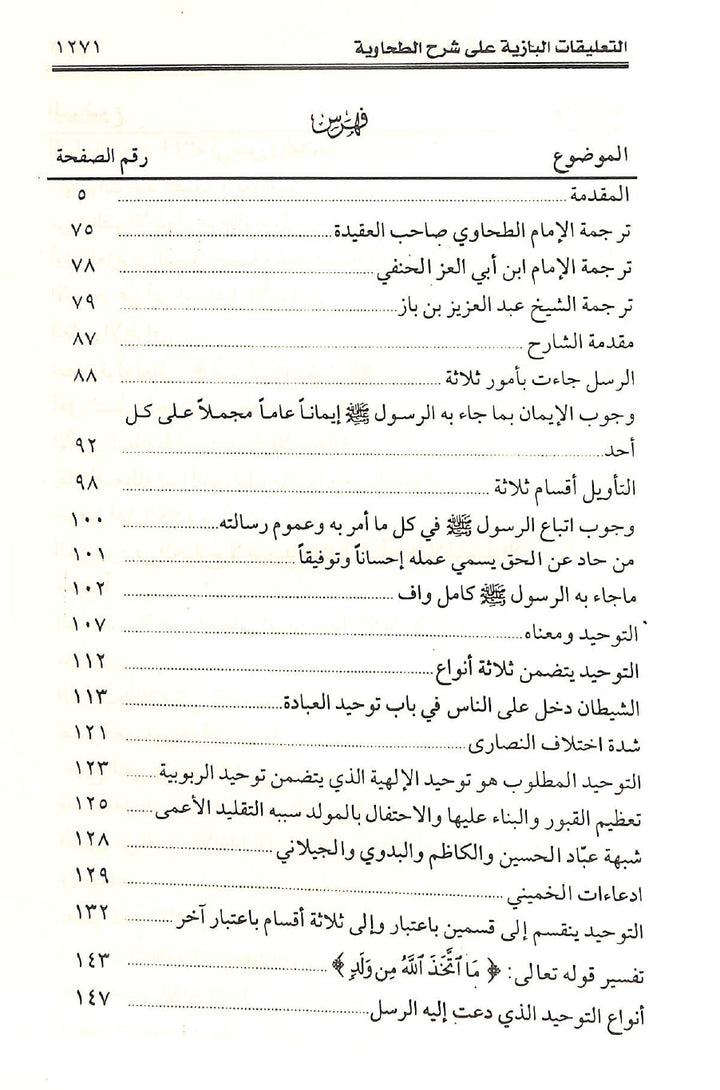 التعليقات البازية على شرح الطحاوية ١٢٧١
فهرس
الموضوع رقم الصفحة
المقدمة ٥
ترجمة الإمام الطحاوي صاحب العقيدة ٧٥
ترجمة الإمام ابن أبي العز الحنفي ٧٨
ترجمة الشيخ عبد العزيز بن باز ٧٩
مقدمة الشارح ٨٧
الرسل جاءت بأمور ثلاثة ٨٨
وجوب الإيمان بما جاء به الرسول ﷺ إيماناً عاماً مجملاً على كل
أحد ٩٢
التأويل أقسام ثلاثة ٩٨
وجوب اتباع الرسول ﷺ في كل ما أمر به وعموم رسالته ١٠٠
من حاد عن الحق يسمي عمله إحساناً وتوفيقاً ١٠١
ماجاء به الرسول ﷺ كامل واف ١٠٢
التوحيد ومعناه ١٠٧
التوحيد يتضمن ثلاثة أنواع ١١٢
الشيطان دخل على الناس في باب توحيد العبادة ١١٣
شدة اختلاف النصارى ١٢١
التوحيد المطلوب هو توحيد الإلهية الذي يتضمن توحيد الربوبية ١٢٣
تعظيم القبور والبناء عليها والاحتفال بالمولد سببه التقليد الأعمى ١٢٥
شبهة عبّاد الحسين والكاظم والبدوي والجيلاني ١٢٨
ادعاءات الخميني ١٢٩
التوحيد ينقسم إلى قسمين باعتبار وإلى ثلاثة أقسام باعتبار آخر ١٣٢
تفسير قوله تعالى: ﴿ مَا ٱتَّخَذَ ٱللَّهُ مِن وَلَدٍ ﴾ ١٤٣
أنواع التوحيد الذي دعت إليه الرسل ١٤٧